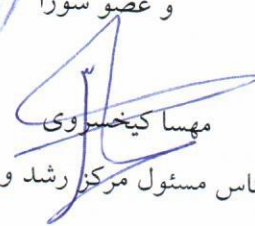 و عضو شورا
مهسا کیخسروی
مسئول مرکز رشد و